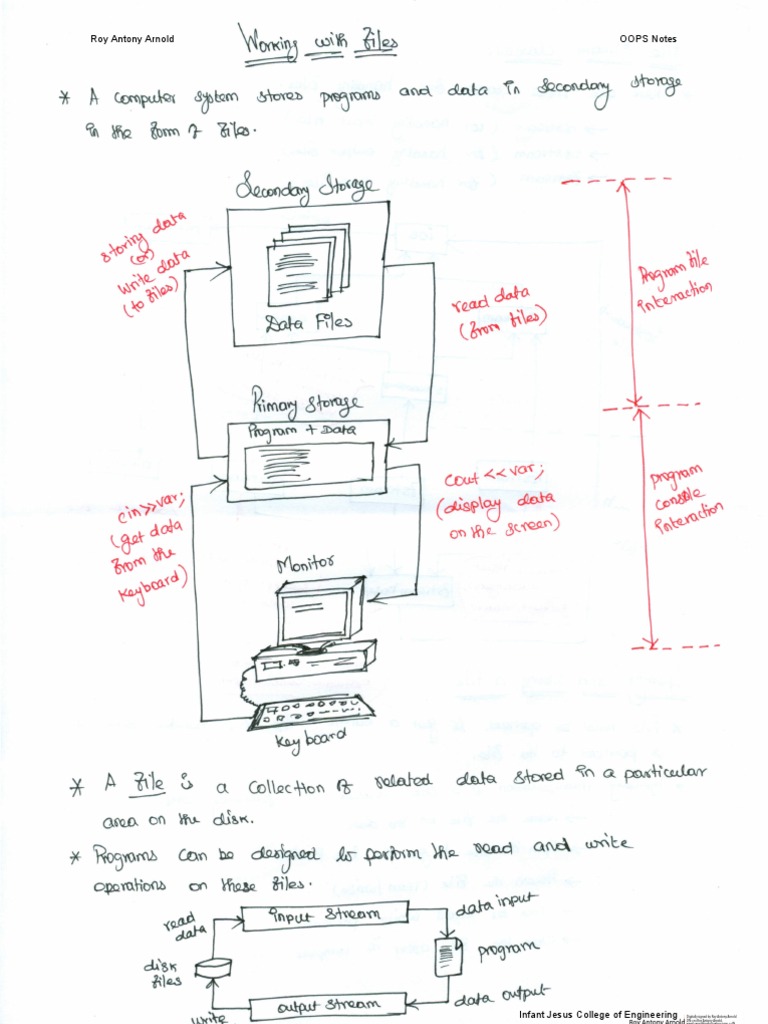 Roy Antony Arnold
OOPS Notes
Working with Files
* A computer system stores programs and data in Secondary storage
in the form of files.
Secondary Storage
Data Files
storing data
(or)
write data
(to files)
read data
(from files)
Program file
interaction
Primary storage
Program + Data
cin>>var;
(get data
from the
keyboard)
cout<<var;
(display data
on the screen)
program
console
interaction
Monitor
Keyboard
* A File is a collection of related data stored in a particular
area on the disk.
* Programs can be designed to perform the read and write
operations on these files.
read
data
input stream
data input
disk
files
program
write
output stream
data output
Infant Jesus College of Engineering
Roy Antony Arnold